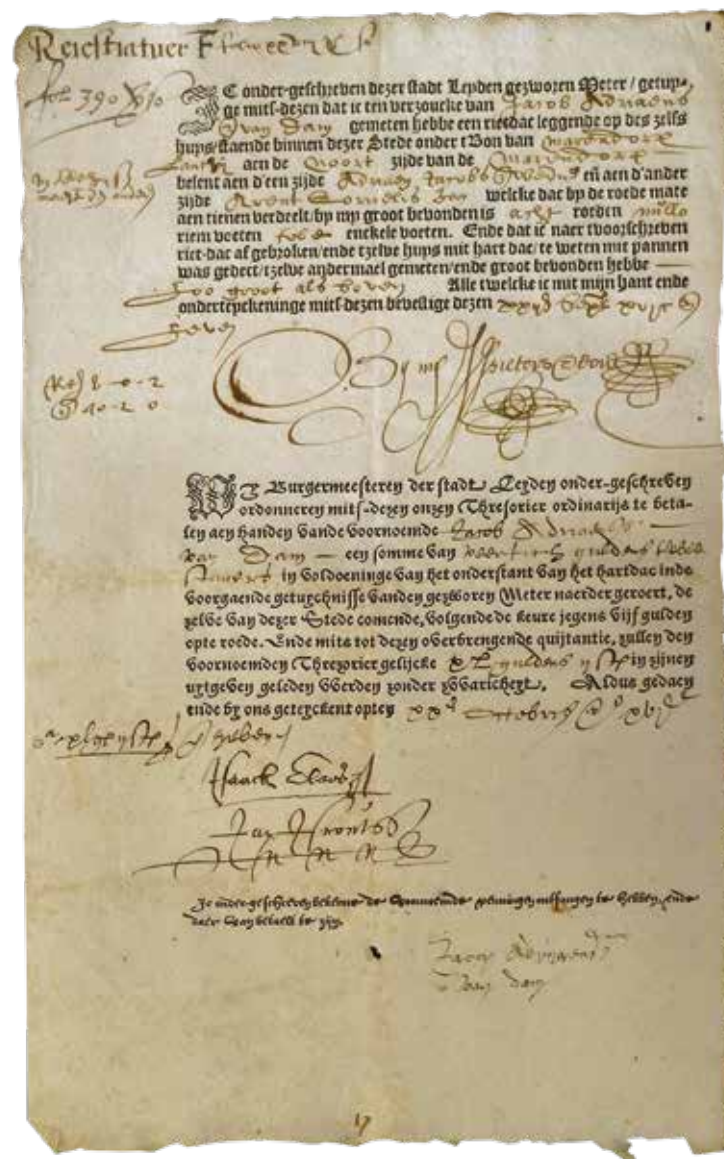 fol. 390
IC onder-geschreven dezer stadt Leyden gezworen Meter / getuy-
ge mits-dezen dat ic ten verzoucke van Jacob Adriaens
van Dam gemeten hebbe een rietdac leggende op des zelfs
huys / staende binnen dezer Stede onder t'Bon van
aen de Noort zijde van de Marendorp
belent aen d'een zijde Adriaen Jacobs eñ aen d'ander
zijde Arent Cornelis welcke dac by de roede mate
aen tienen verdeelt / by my groot bevonden is acht roeden nullo
riem voeten enckele voeten. Ende dat ic naer tvoorschreven
riet-dac af gebroken / ende tzelve huys mit hart dac / te weten mit pannen
was gedect / tzelve andermael gemeten / ende groot bevonden hebbe
soo groot als boven Alle twelcke ic mit mijn hant ende
onderteyckeninge mits-dezen bevestige dezen
zeven
By my Pieters
8-0-2
40-2-0
WY Burgermeesteren der stadt Leyden onder-geschreven
ordonneren mits-dezen onzen Thresorier ordinaris te beta-
len aen handen vande voornoemde Jacob Adriaens
van Dam een somme van veertich guldens twee
stuvers in voldoeninge van het onderstant van het hartdac inde
voorgaende getuychnisse vanden gezworen Meter naerder geroert, de
zelve van dezer Stede comende, volgende de keure jegens vijf gulden
opte roede. Ende mits tot dezen overbrengende quijtantie, zullen den
voornoemden Threzorier gelijcke xl guldens ij st in zijnen
uytgeven geleden werden zonder zwaricheyt. Aldus gedaen
ende by ons geteyckent opten xx Octobris xvj
zeven
Isaack Claes
Jan
Ic onder geschreven bekenne de voornoemde penningen ontfangen te hebben, ende
daer van betaelt te zijn.
Jacop Adriaens
van dam
17